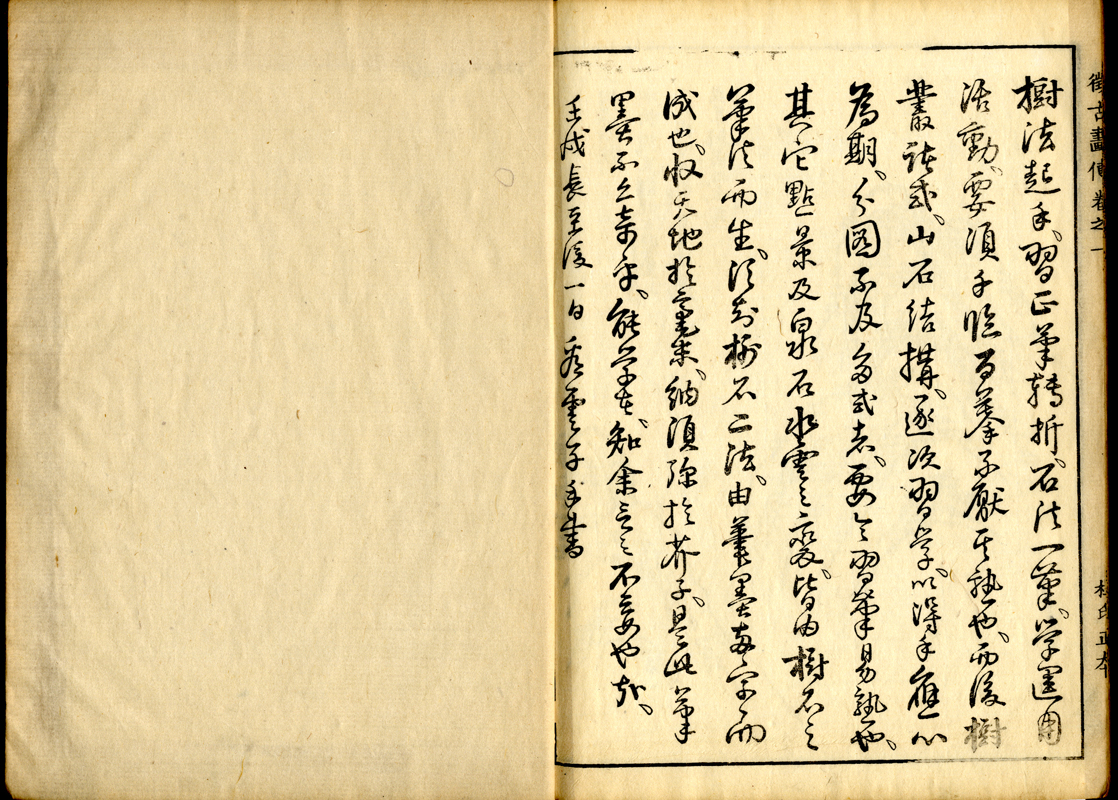 徵古畫傳卷之一
樹法起手、習正筆轉折、石法一筆、学運用
活動、要須手臨百摹不厭其熟也、而後樹
叢諸式、山石結搆、逐次習学、以得手應心
為期、分圖不及多式者、要令習筆易熟也、
其它點景及泉石水雲之變、皆由樹石之
筆法而生、須知樹石二法、由筆墨両字而
成也、収天地於毫末、納須弥於芥子、是此筆
墨不亦奇乎、能学者、知余言之不妄也
壬戌長至後一日 雲子手書